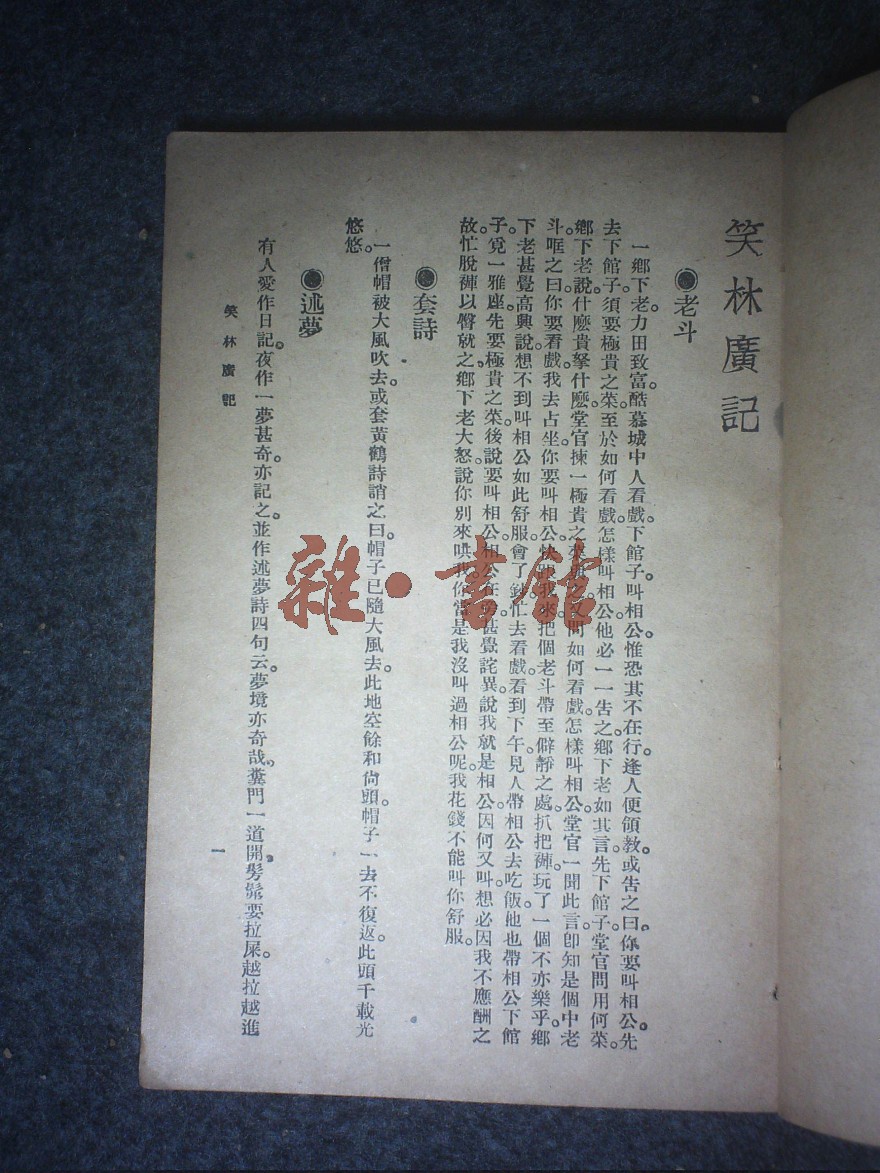 笑林廣記
●老斗
一鄉下老。力田致富。酷慕城中人看戲。下館子。叫相公。惟恐其不在行。逢人便領教。或告之曰。你要叫相公。先
去下館子。須要極貴之菜。至於如何看戲。怎樣叫相公。他必一一告之。鄉下老如其言。先下館子。堂官問用何菜。
鄉下老說。什麼貴拏什麼。堂官揀一極貴之菜 之。又問如何看戲。怎樣叫相公。堂官一聞此言。卽知是個中老
斗。哐之曰。你要看戲。我去占坐。你要叫相公。快 我來。把個老斗帶至僻靜之處。扒把褲。玩了一個不亦樂乎。鄉
下老甚覺高興。說想不到叫相公如此舒服。會了鈔。忙去看戲。看到下午。見人帶相公去吃飯。他也帶相公下館
子。覓一雅座。先要極貴之菜。後說要叫相公。相公在 甚覺詫異。說我就是相公。因何又叫。想必因我不應酬之
故。忙脫褲以臀就之。鄉下老大怒。說你別來哄我。你當是我沒叫過相公呢。我花錢不能叫你舒服。
●套詩
一僧帽被大風吹去。或套黃鶴詩誚之曰。帽子已隨大風去。此地空餘和尙頭。帽子一去不復返。此頭千載光
悠悠。
●述夢
有人愛作日記。夜作一夢甚奇。亦記之。並作述夢詩四句云。夢境亦奇哉。糞門一道開。髣髴要拉屎。越拉越進
笑林廣記
一
雜·書館